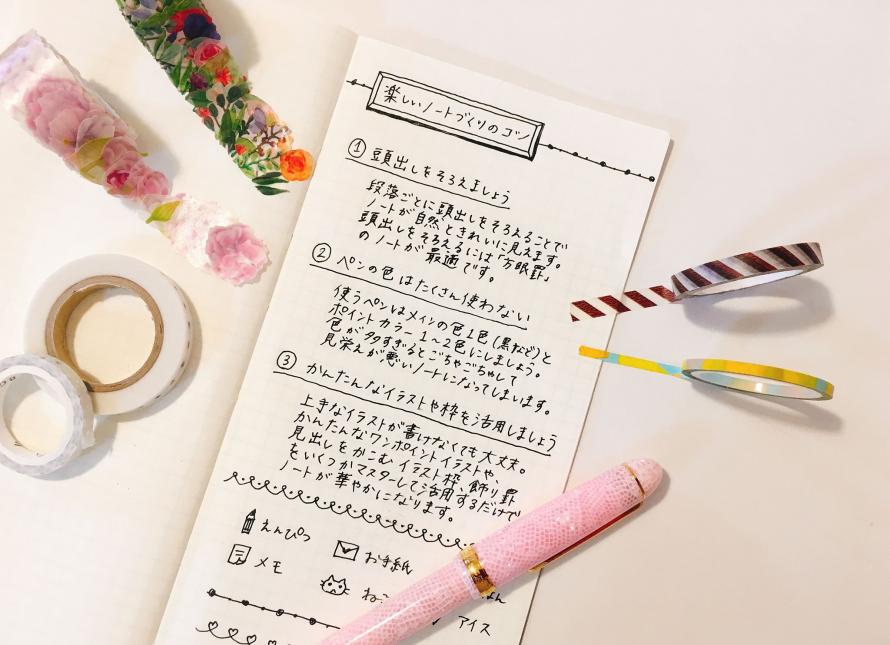 楽しいノートづくりのコツ
① 頭出しをそろえましょう
段落ごとに頭出しをそろえることで
ノートが自然ときれいに見えます。
頭出しをそろえるには「方眼罫」
のノートが最適です。
② ペンの色はたくさん使わない
使うペンはメインの色1色(黒など)と
ポイントカラー1〜2色にしましょう。
色が多すぎるとごちゃごちゃして
見栄えが悪いノートになってしまいます。
③ かんたんなイラストや枠を活用しましょう
上手なイラストが書けなくても大丈夫。
かんたんなワンポイントイラストや、
見出しをかこむイラスト枠、飾り罫
をいくつかマスターして活用するだけで
ノートが華やかになります。
えんぴつ
お手紙
メモ
ねこ
アイス